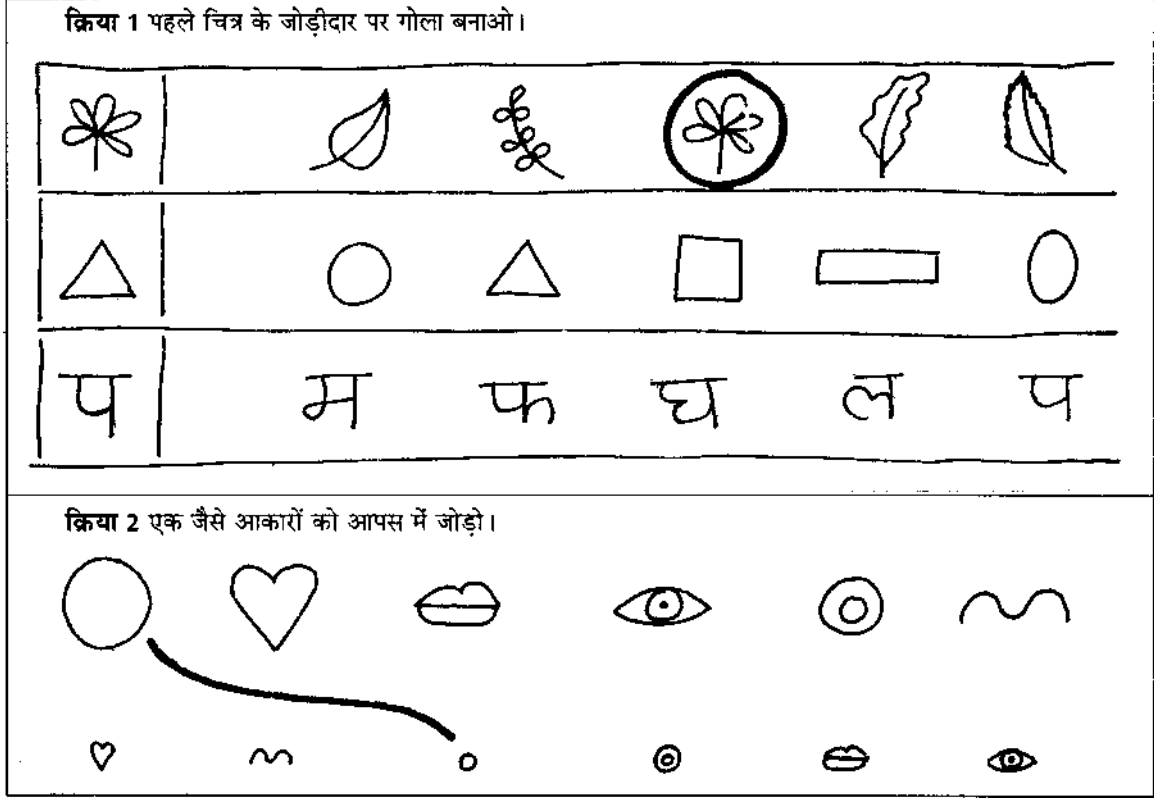 क्रिया 1 पहले चित्र के जोड़ीदार पर गोला बनाओ।
प म फ घ ल प
क्रिया 2 एक जैसे आकारों को आपस में जोड़ो।